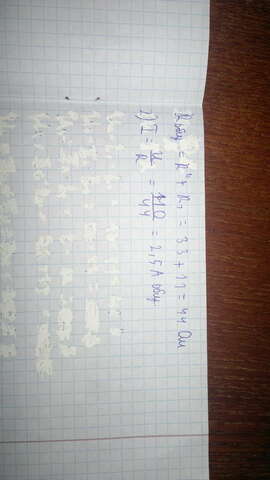 Rобщ = R" + R₁ = 33 + 11 = 44 Ом
2) I = U/R = 110/44 = 2,5 А общ